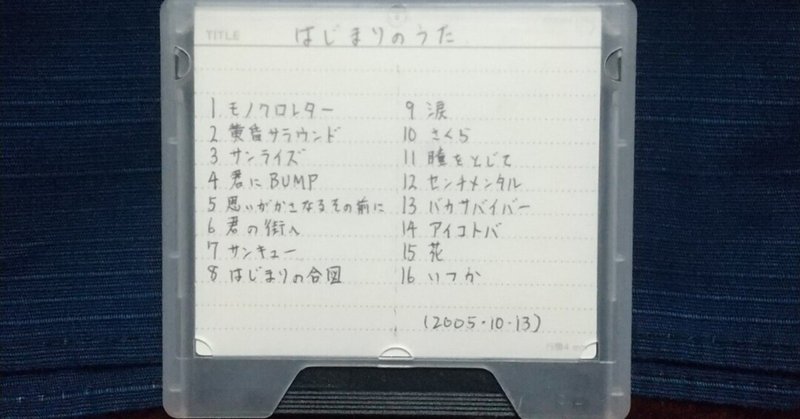 TITLE
はじまりのうた
1 モノクロレター
2 黄昏サラウンド
3 サンライズ
4 君にBUMP
5 思いがかさなるその前に
6 君の街へ
7 サンキュー
8 はじまりの合図
9 涙
10 さくら
11 瞳をとじて
12 センチメンタル
13 バカサバイバー
14 アイコトバ
15 花
16 いつか
(2005・10・13)